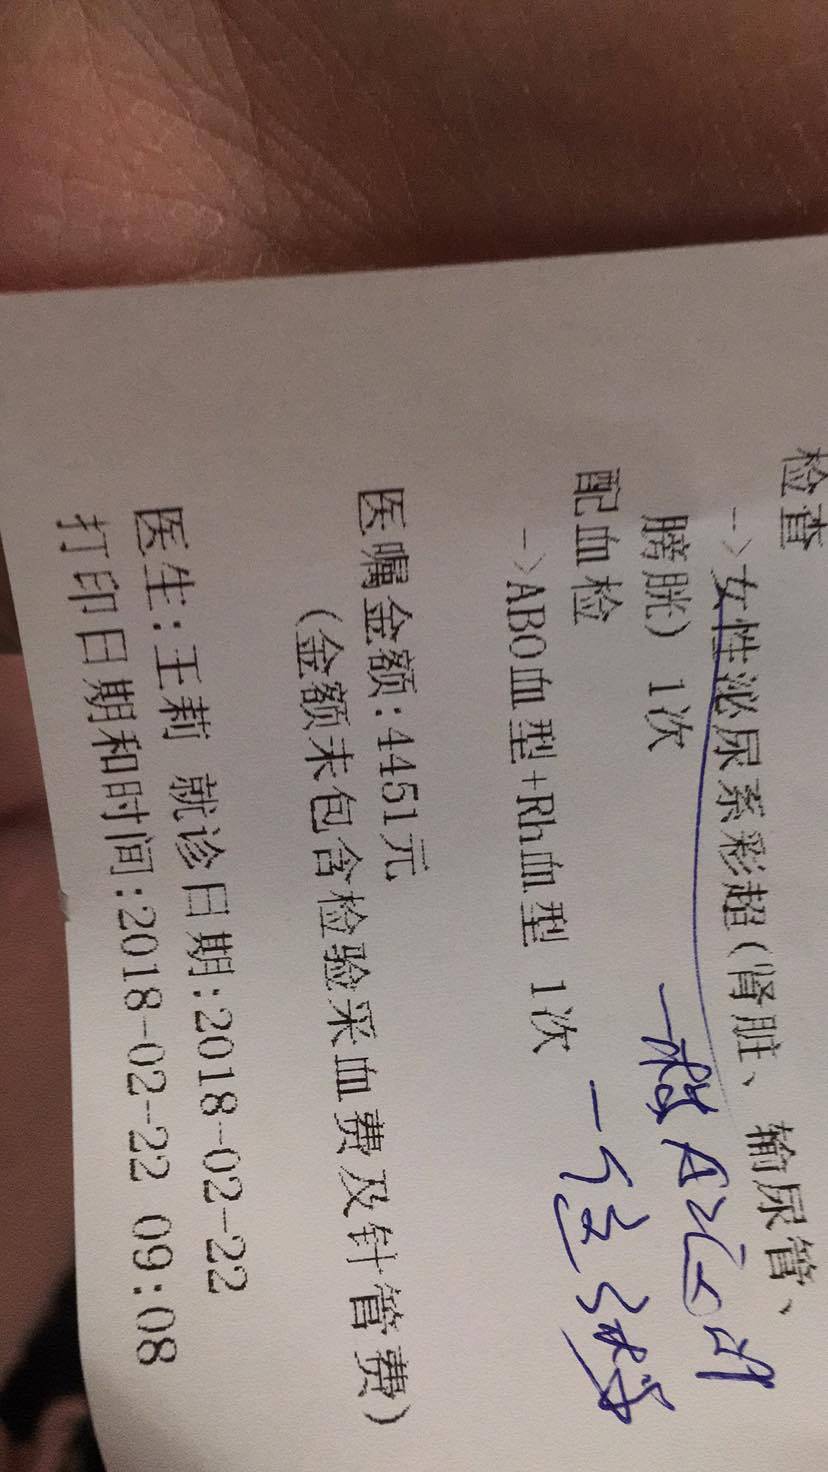 检查
->女性泌尿系彩超(肾脏、输尿管、
膀胱) 1次
配血检
->ABO血型+Rh血型 1次
医嘱金额:4451元
(金额未包含检验采血费及针管费)
医生:王莉 就诊日期:2018-02-22
打印日期和时间:2018-02-22 09:08